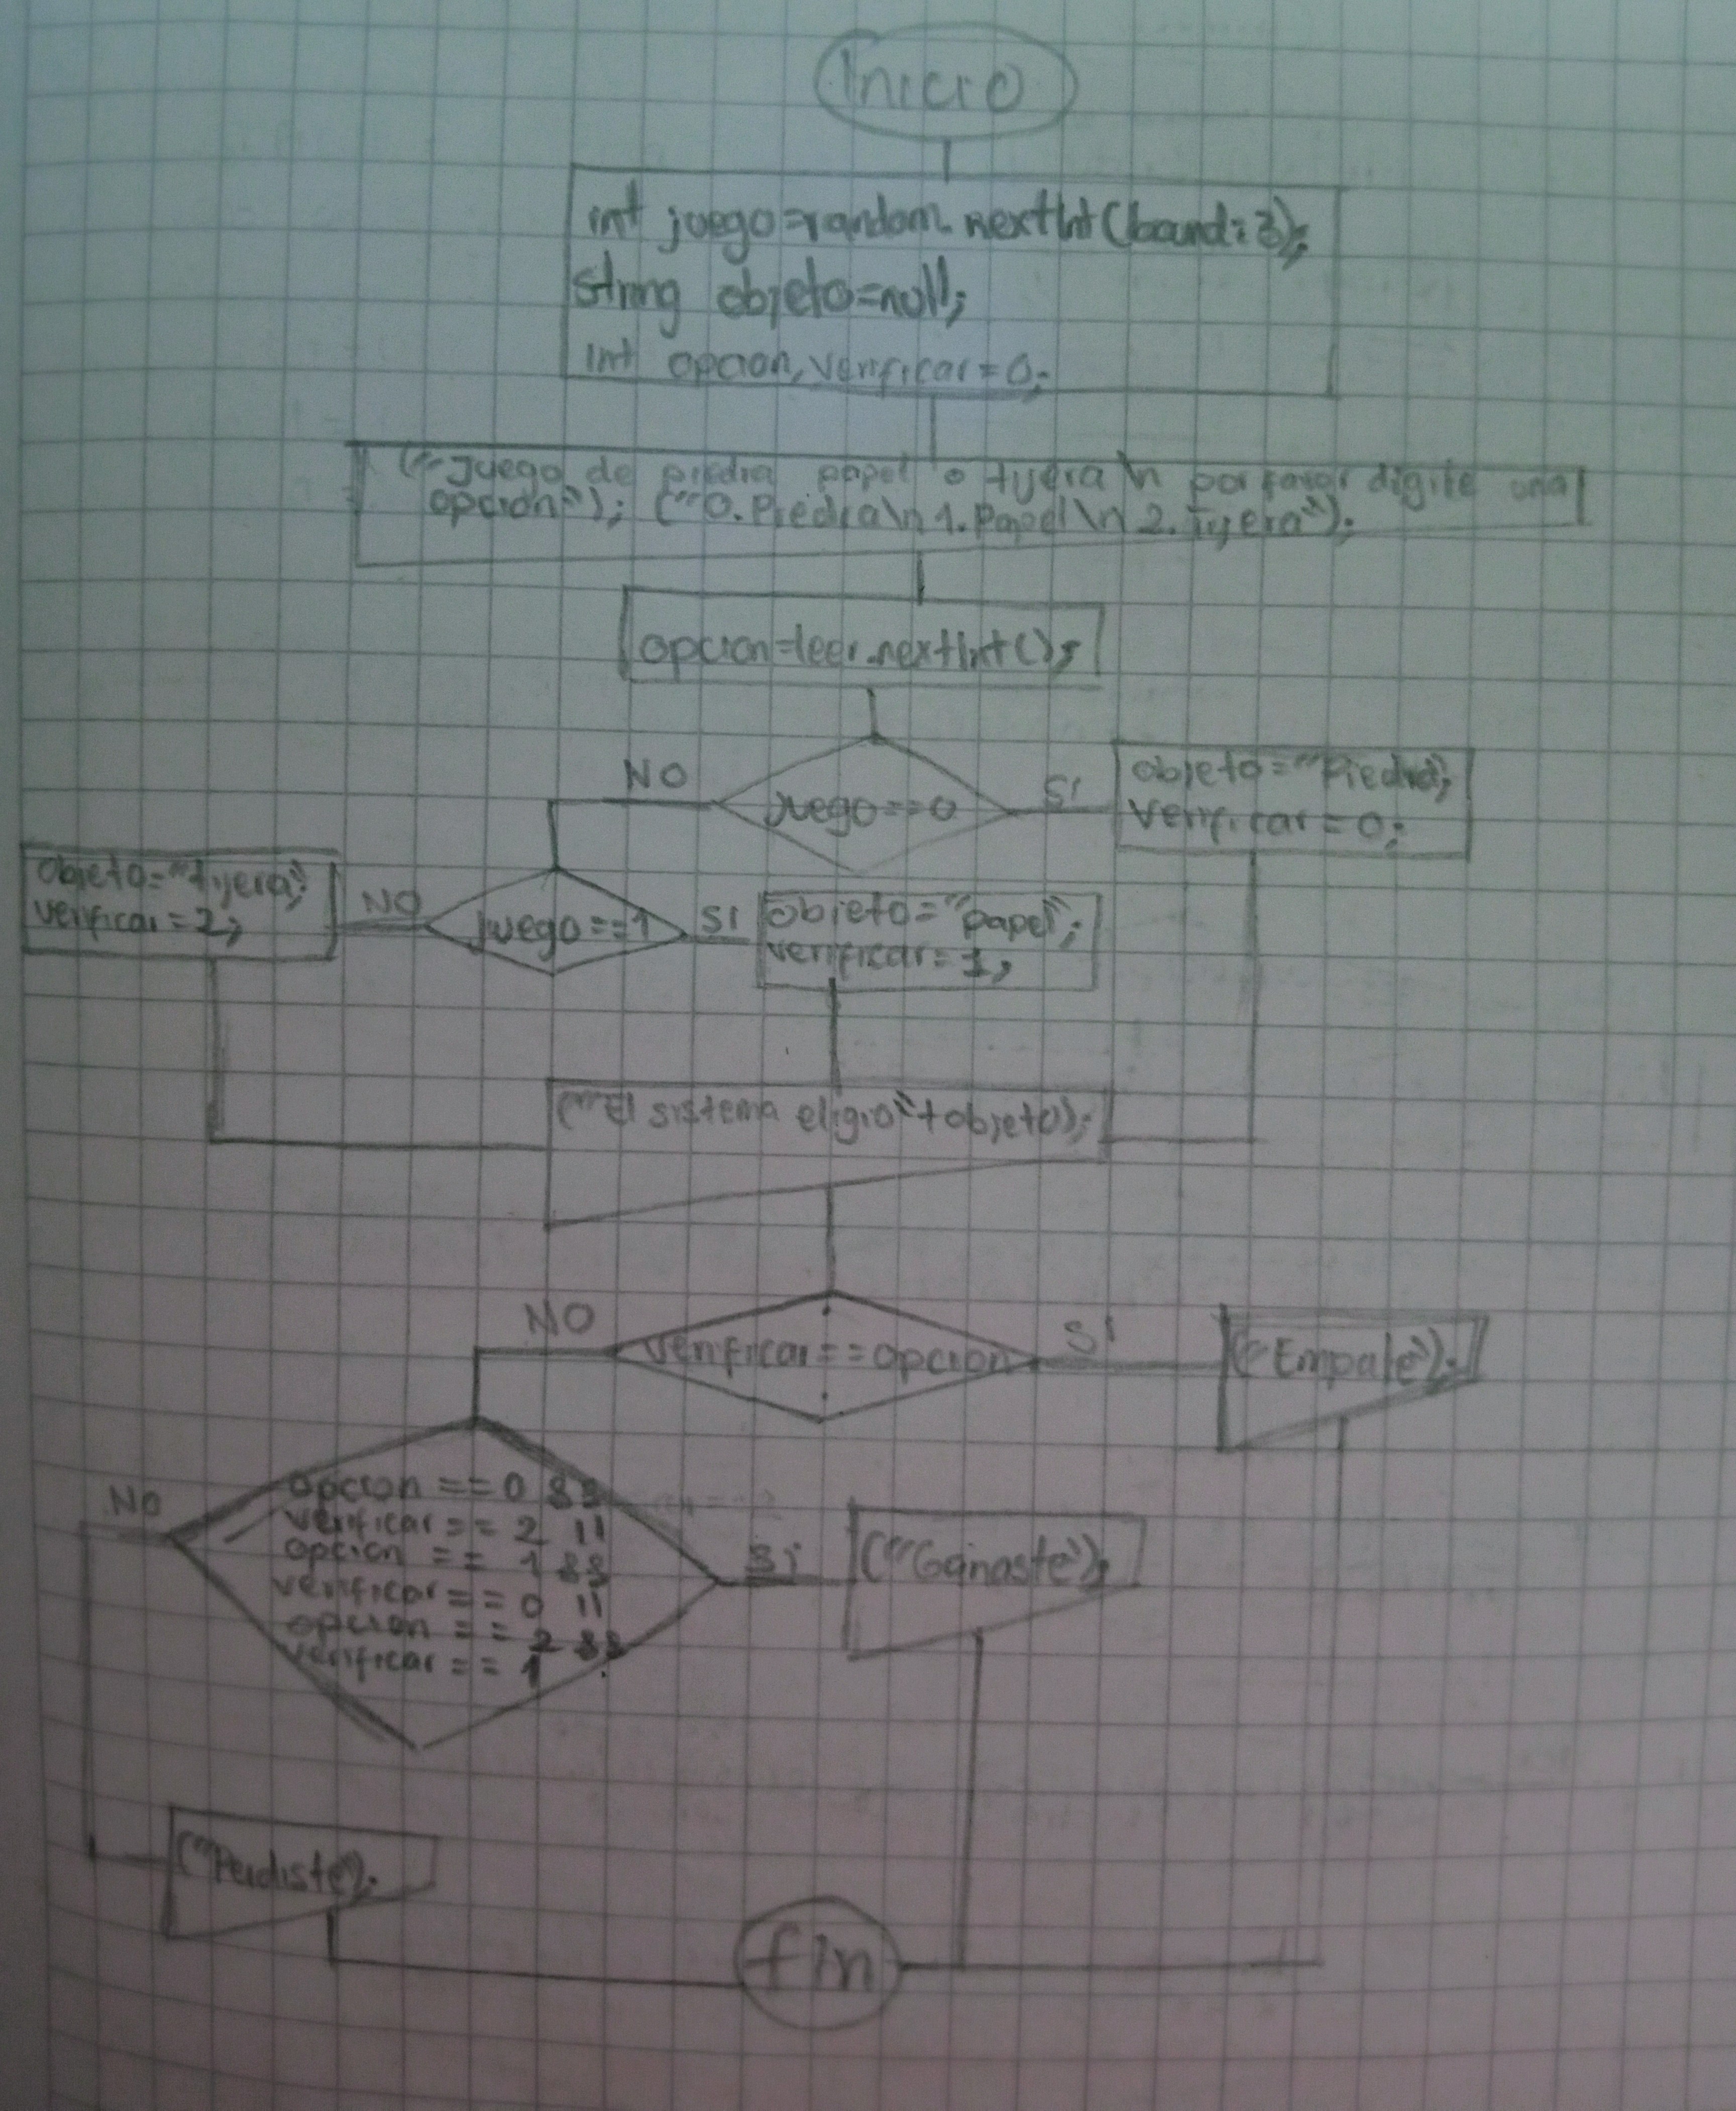 Inicio
int juego=random.nextInt(bound:3);
string objeto=null;
int opcion,verificar=0;
("Juego de piedra papel o tijera \n por favor digite una
opcion"); ("0.Piedra\n 1.Papel\n 2.Tijera");
opcion=leer.nextInt();
NO
juego==0
SI
objeto="Piedra";
verificar=0;
objeto="tijera";
verificar=2;
NO
juego==1
SI
objeto="papel";
verificar=1;
("El sistema eligio"+objeto);
NO
verificar==opcion
SI
("Empate");
NO
opcion == 0 &&
verificar == 2 ||
opcion == 1 &&
verificar == 0 ||
opcion == 2 &&
verificar == 1
Si
("Ganaste");
("Perdiste");
fin